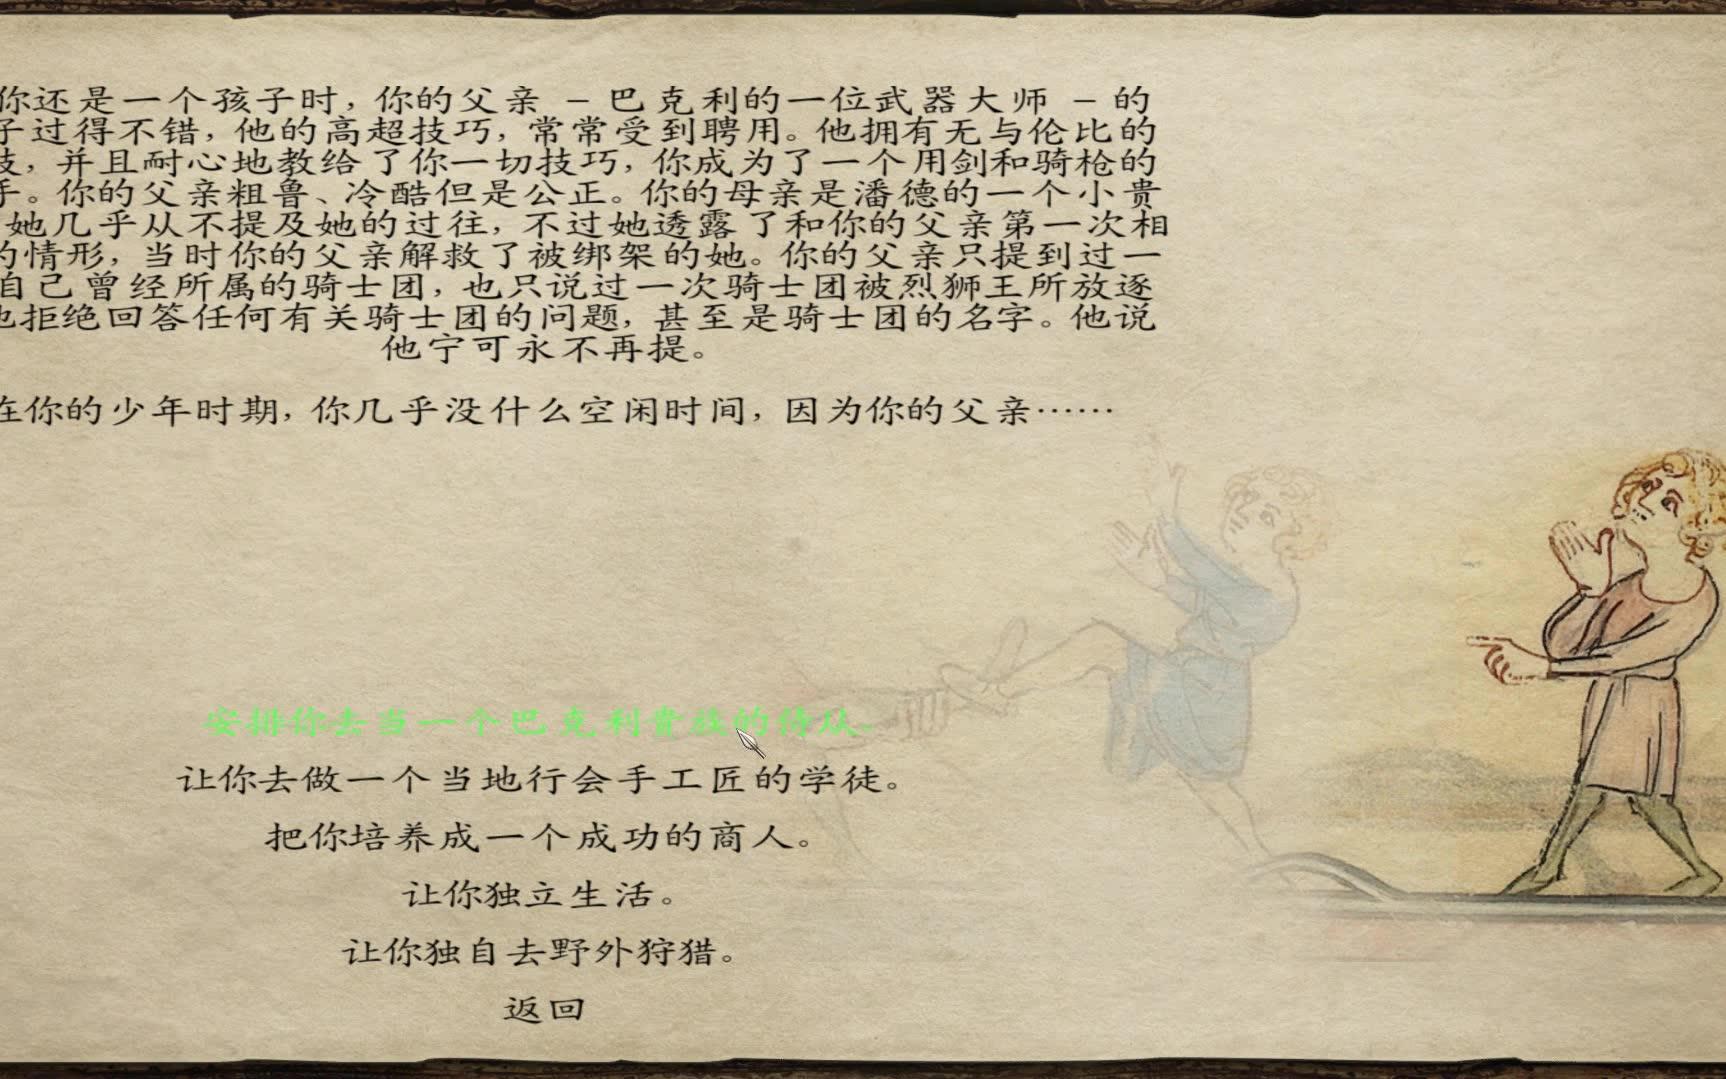 你还是一个孩子时，你的父亲 – 巴克利的一位武器大师 – 的
子过得不错，他的高超技巧，常常受到聘用。他拥有无与伦比的
技，并且耐心地教给了你一切技巧，你成为了一个用剑和骑枪的
手。你的父亲粗鲁、冷酷但是公正。你的母亲是潘德的一个小贵
她几乎从不提及她的过往，不过她透露了和你的父亲第一次相
的情形，当时你的父亲解救了被绑架的她。你的父亲只提到过一
自己曾经所属的骑士团，也只说过一次骑士团被烈狮王所放逐
他拒绝回答任何有关骑士团的问题，甚至是骑士团的名字。他说
他宁可永不再提。
在你的少年时期，你几乎没什么空闲时间，因为你的父亲……
安排你去当一个巴克利贵族的侍从。
让你去做一个当地行会手工匠的学徒。
把你培养成一个成功的商人。
让你独立生活。
让你独自去野外狩猎。
返回